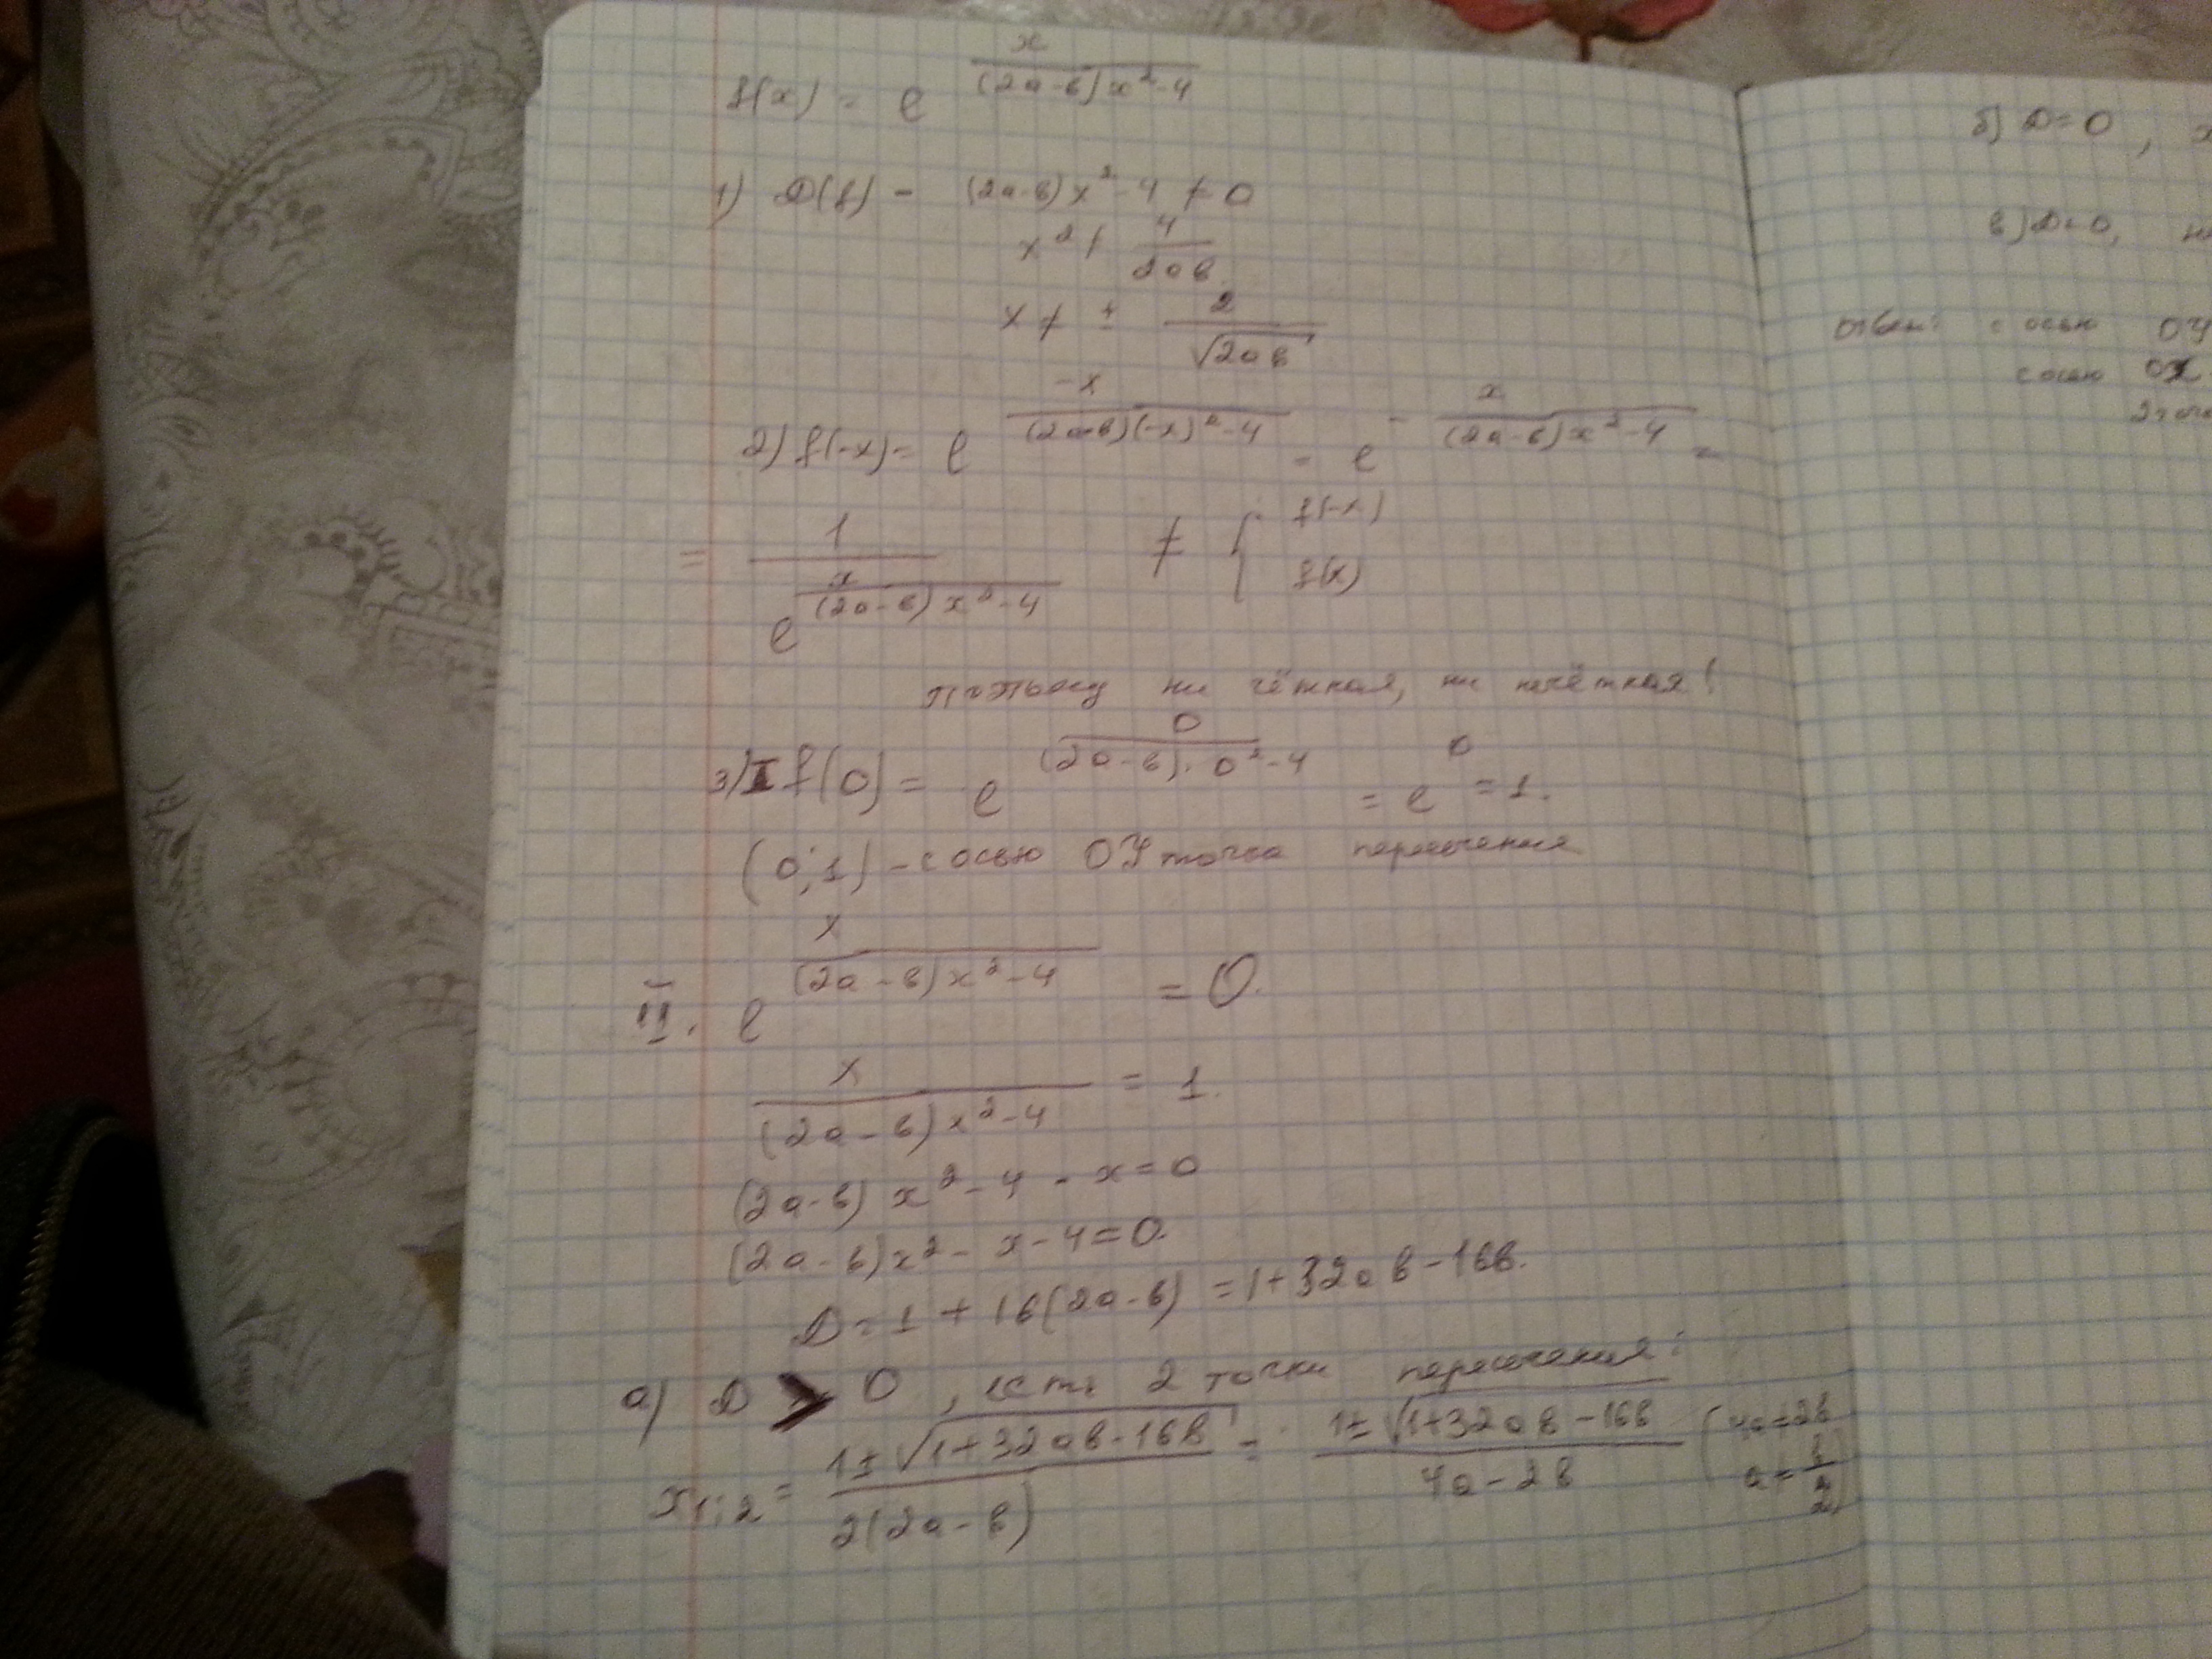 f(x) = e^{\frac{x}{(2a-в)x²-4}}
1) D(f) - (2a-в)x²-4 ≠ 0
x² ≠ \frac{4}{2aв}
x ≠ ± \frac{2}{\sqrt{2aв}}
2) f(-x) = e^{\frac{-x}{(2a-в)(-x)²-4}} = e^{-\frac{x}{(2a-в)x²-4}} =
= \frac{1}{e^{\frac{x}{(2a-в)x²-4}}} ≠ { f(-x)
f(x)
поэтому ни чётная, ни нечётная!
3) I f(0) = e^{\frac{0}{(2a-в)·0²-4}} = e^0 = 1.
(0;1) - с осью ОУ точка пересечения
II. e^{\frac{x}{(2a-в)x²-4}} = 0.
\frac{x}{(2a-в)x²-4} = 1.
(2a-в)x²-4-x=0
(2a-в)x²-x-4=0.
D=1+16(2a-в)=1+32aв-16в.
а) D > 0, есть 2 точки пересечения:
x_{1;2} = \frac{1±\sqrt{1+32aв-16в}}{2(2a-в)} = \frac{1±\sqrt{1+32aв-16в}}{4a-2в} (4a=2в
a=\frac{в}{2})
б) D=0,
в) D<0,
ответ: с осью ОУ
с осью ОХ